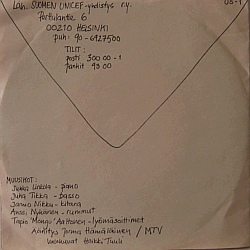 Läh. SUOMEN UNICEF-yhdistys r.y.
Perttulantie 6
00210 HELSINKI
puh: 90-6927500
TILIT:
posti 300 00-1
pankit 93 00
MUUSIKOT:
Jukka Linkola - piano
Juha Tikka - basso
Jarmo Nikku - kitara
Anssi Nykänen - rummut
Tapio "Mongo" Aaltonen - lyömäsoittimet
Äänitys Jorma Hämäläinen / MTV
Heikki Tuuli